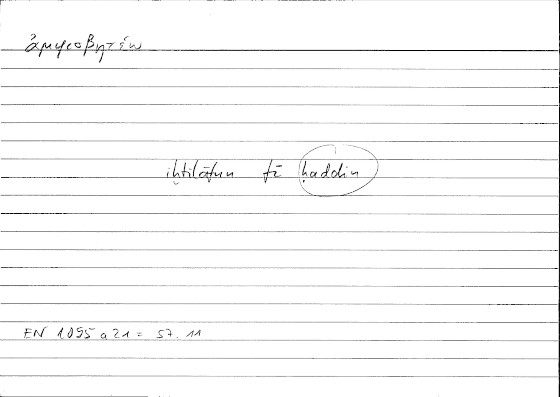 ἀμφισβητέω
iḫtilāfun fī ḥaddin
EN 1095 a 21 = 57.11